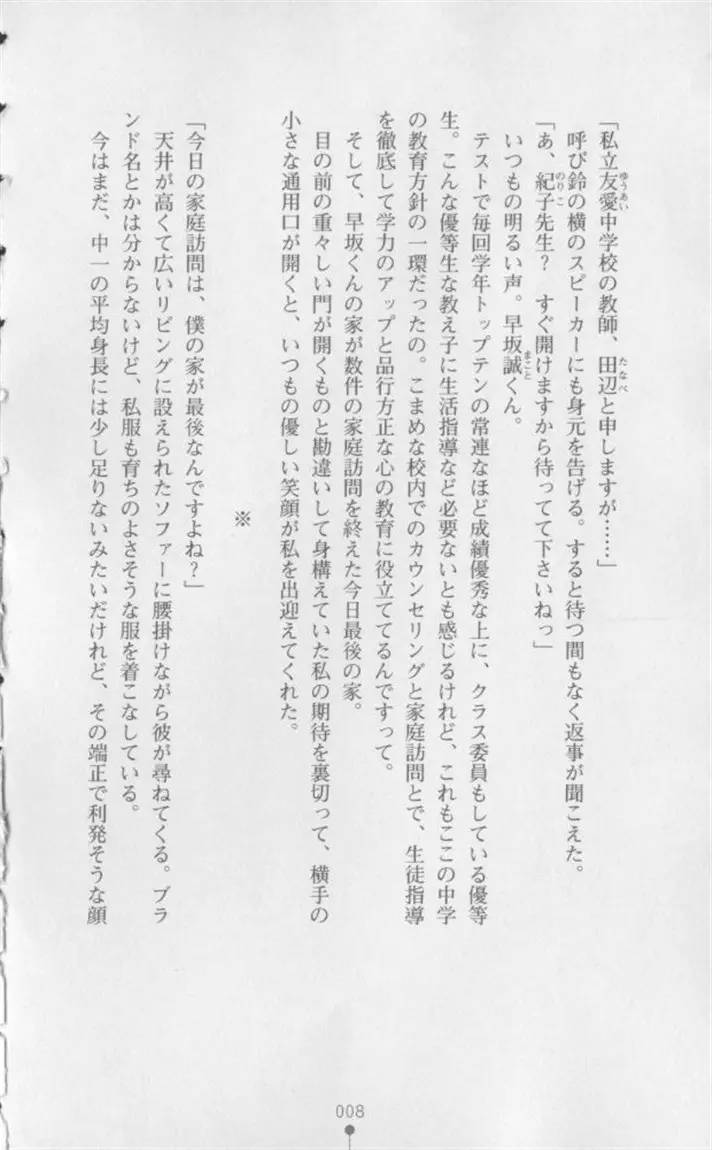 「私立友愛中学校の教師、田辺と申しますが……」
呼び鈴の横のスピーカーにも身元を告げる。すると待つ間もなく返事が聞こえた。
「あ、紀子先生？　すぐ開けますから待ってて下さいねっ」
いつもの明るい声。早坂誠くん。
テストで毎回学年トップテンの常連なほど成績優秀な上に、クラス委員もしている優等
生。こんな優等生な教え子に生活指導など必要ないとも感じるけれど、これもここの中学
の教育方針の一環だったの。こまめな校内でのカウンセリングと家庭訪問とで、生徒指導
を徹底して学力のアップと品行方正な心の教育に役立ててるんですって。
そして、早坂くんの家が数件の家庭訪問を終えた今日最後の家。
目の前の重々しい門が開くものと勘違いして身構えていた私の期待を裏切って、横手の
小さな通用口が開くと、いつもの優しい笑顔が私を出迎えてくれた。
※
「今日の家庭訪問は、僕の家が最後なんですよね？」
天井が高くて広いリビングに設えられたソファーに腰掛けながら彼が尋ねてくる。ブラ
ンド名とかは分からないけど、私服も育ちのよさそうな服を着こなしている。
今はまだ、中一の平均身長には少し足りないみたいだけれど、その端正で利発そうな顔
008